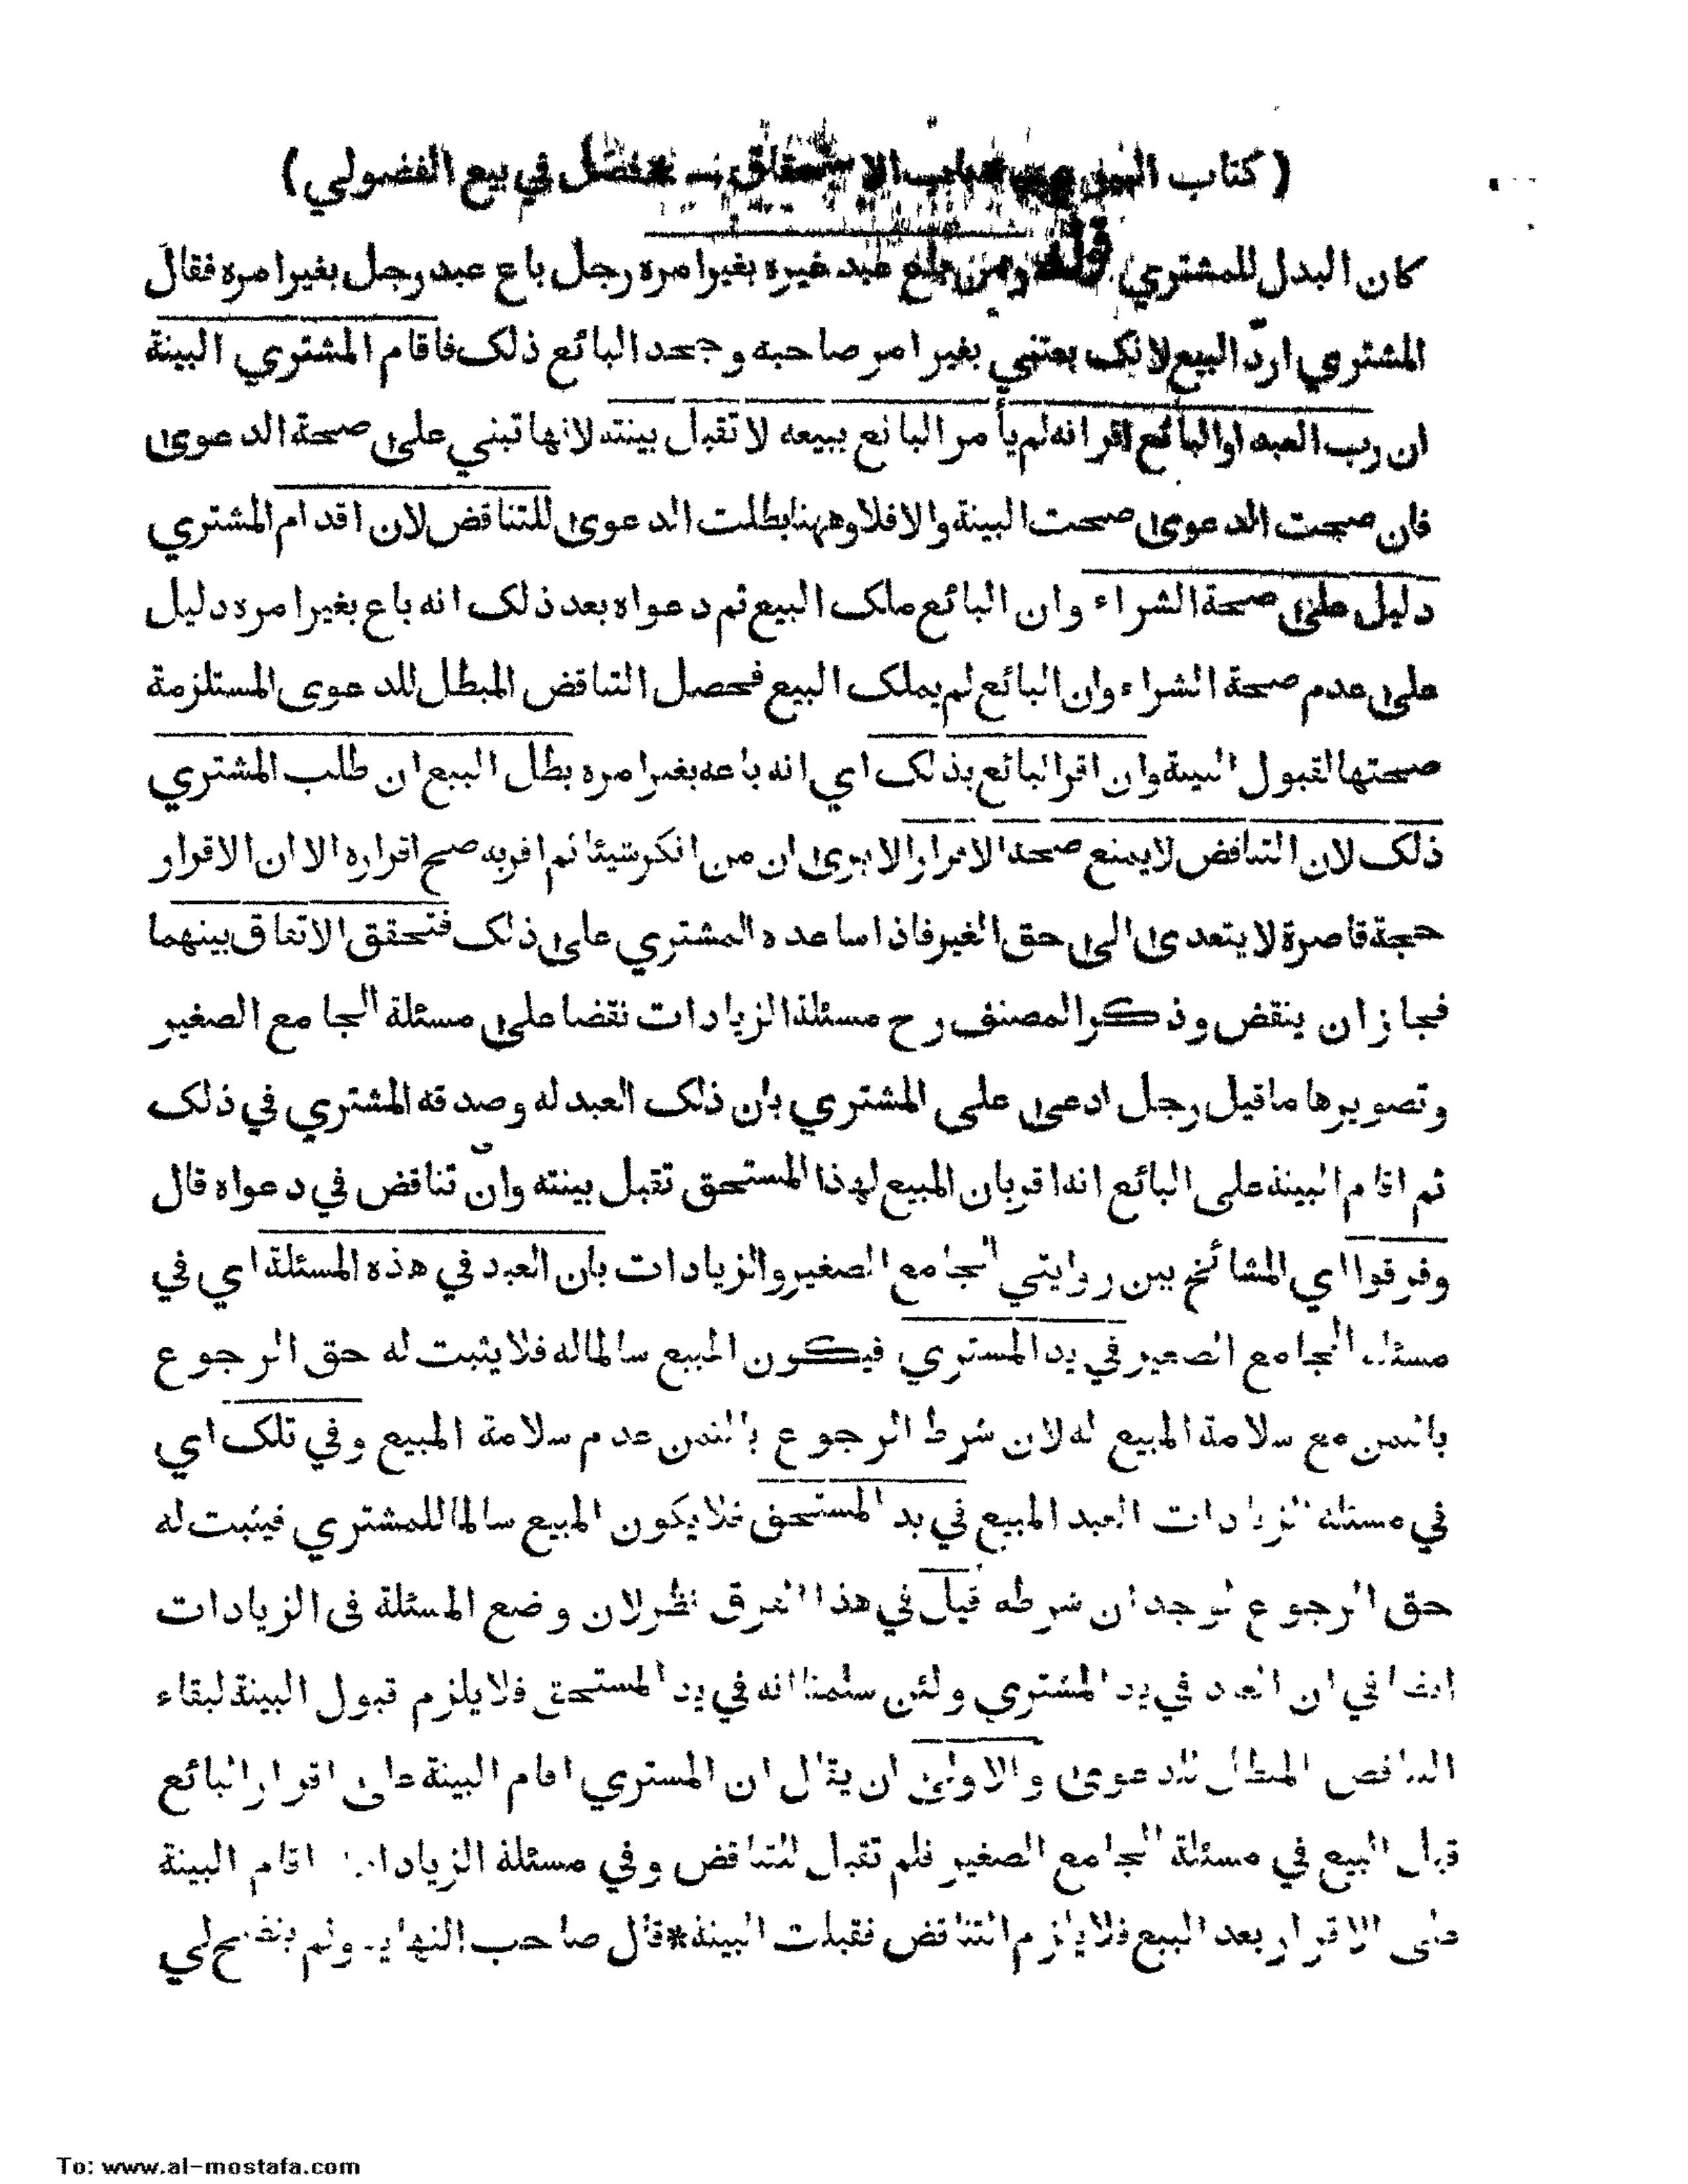 ( كتاب البيوع باب الاستحقاق فصل في بيع الفضولي )
كان البدل للمشتري قوله ومن باع عبد غيره بغير امره رجل باع عبد رجل بغير امره فقال
المشتري اردّ البيع لانك بعتني بغير امر صاحبه وجحد البائع ذلك فاقام المشتري البينة
ان رب العبد او البائع اقر انه لم يأمر البائع ببيعه لا تقبل بينته لانها تبني على صحة الدعوى
فان صحت الدعوى صحت البينة والا فلا وههنا بطلت الدعوى للتناقض لان اقدام المشتري
دليل على صحة الشراء وان البائع ملك البيع ثم دعواه بعد ذلك انه باع بغير امره دليل
على عدم صحة الشراء وان البائع لم يملك البيع فحصل التناقض المبطل للدعوى المستلزمة
صحتها لقبول البينة وان اقر البائع بذلك اي انه باعه بغير امره بطل البيع ان طلب المشتري
ذلك لان التناقض لا يمنع صحة الاقرار الا يرى ان من انكر شيئا ثم اقر به صح اقراره الا ان الاقرار
حجة قاصرة لا يتعدى الى حق الغير فاذا ساعده المشتري على ذلك فتحقق الاتفاق بينهما
فجاز ان ينقض وذكر المصنف رح مسئلة الزيادات نقضا على مسئلة الجامع الصغير
وتصويرها ما قيل رجل ادعى على المشتري بان ذلك العبد له وصدقه المشتري في ذلك
ثم اقام البينة على البائع انه اقر بان المبيع لهذا المستحق تقبل بينته وان تناقض في دعواه قال
وفرقوا اي المشائخ بين روايتي الجامع الصغير والزيادات بان العبد في هذه المسئلة اي في
مسئلة الجامع الصغير في يد المشتري فيكون المبيع سالما له فلا يثبت له حق الرجوع
بالثمن مع سلامة المبيع له لان شرط الرجوع بالثمن عدم سلامة المبيع وفي تلك اي
في مسئلة الزيادات العبد المبيع في يد المستحق فلا يكون المبيع سالما للمشتري فيثبت له
حق الرجوع لوجدان شرطه قيل في هذا الفرق نظر لان وضع المسئلة فى الزيادات
ايضا في ان العبد في يد المشتري ولئن سلمنا انه في يد المستحق فلا يلزم قبول البينة لبقاء
التناقض المبطل للدعوى والاولى ان يقال ان المشتري اقام البينة على اقرار البائع
قبل البيع في مسئلة الجامع الصغير فلم تقبل للتناقض وفي مسئلة الزيادات اقام البينة
على الاقرار بعد البيع فلا يلزم التناقض فقبلت البينة * قال صاحب النهاية ولم يتضح لي
To: www.al-mostafa.com